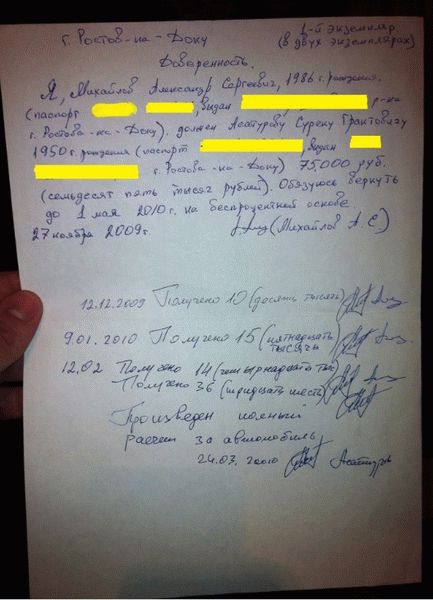 г. Ростов-на-Дону
1-й экземпляр
(в двух экземплярах)
Доверенность.
Я, Михайлов Александр Сергеевич, 1986 г. рождения.
(паспорт выдан р-на
г. Ростова-на-Дону). должен Асатурову Сурену Грантовичу
1950 г. рождения (паспорт выдан
г. Ростова-на-Дону) 75000 руб.
(семьдесят пять тысяч рублей). Обязуюсь вернуть
до 1 мая 2010 г. на беспроцентной основе.
27 ноября 2009 г. (Михайлов А. С)
12.12.2009 Получено 10 (десять тысяч)
9.01.2010 Получено 15 (пятнадцать
тысяч)
12.02 Получено 14 (четырнадцать тыс)
Получено 36 (тридцать шесть)
Произведен полный
расчет за автомобиль
24.03.2010 Асатуров